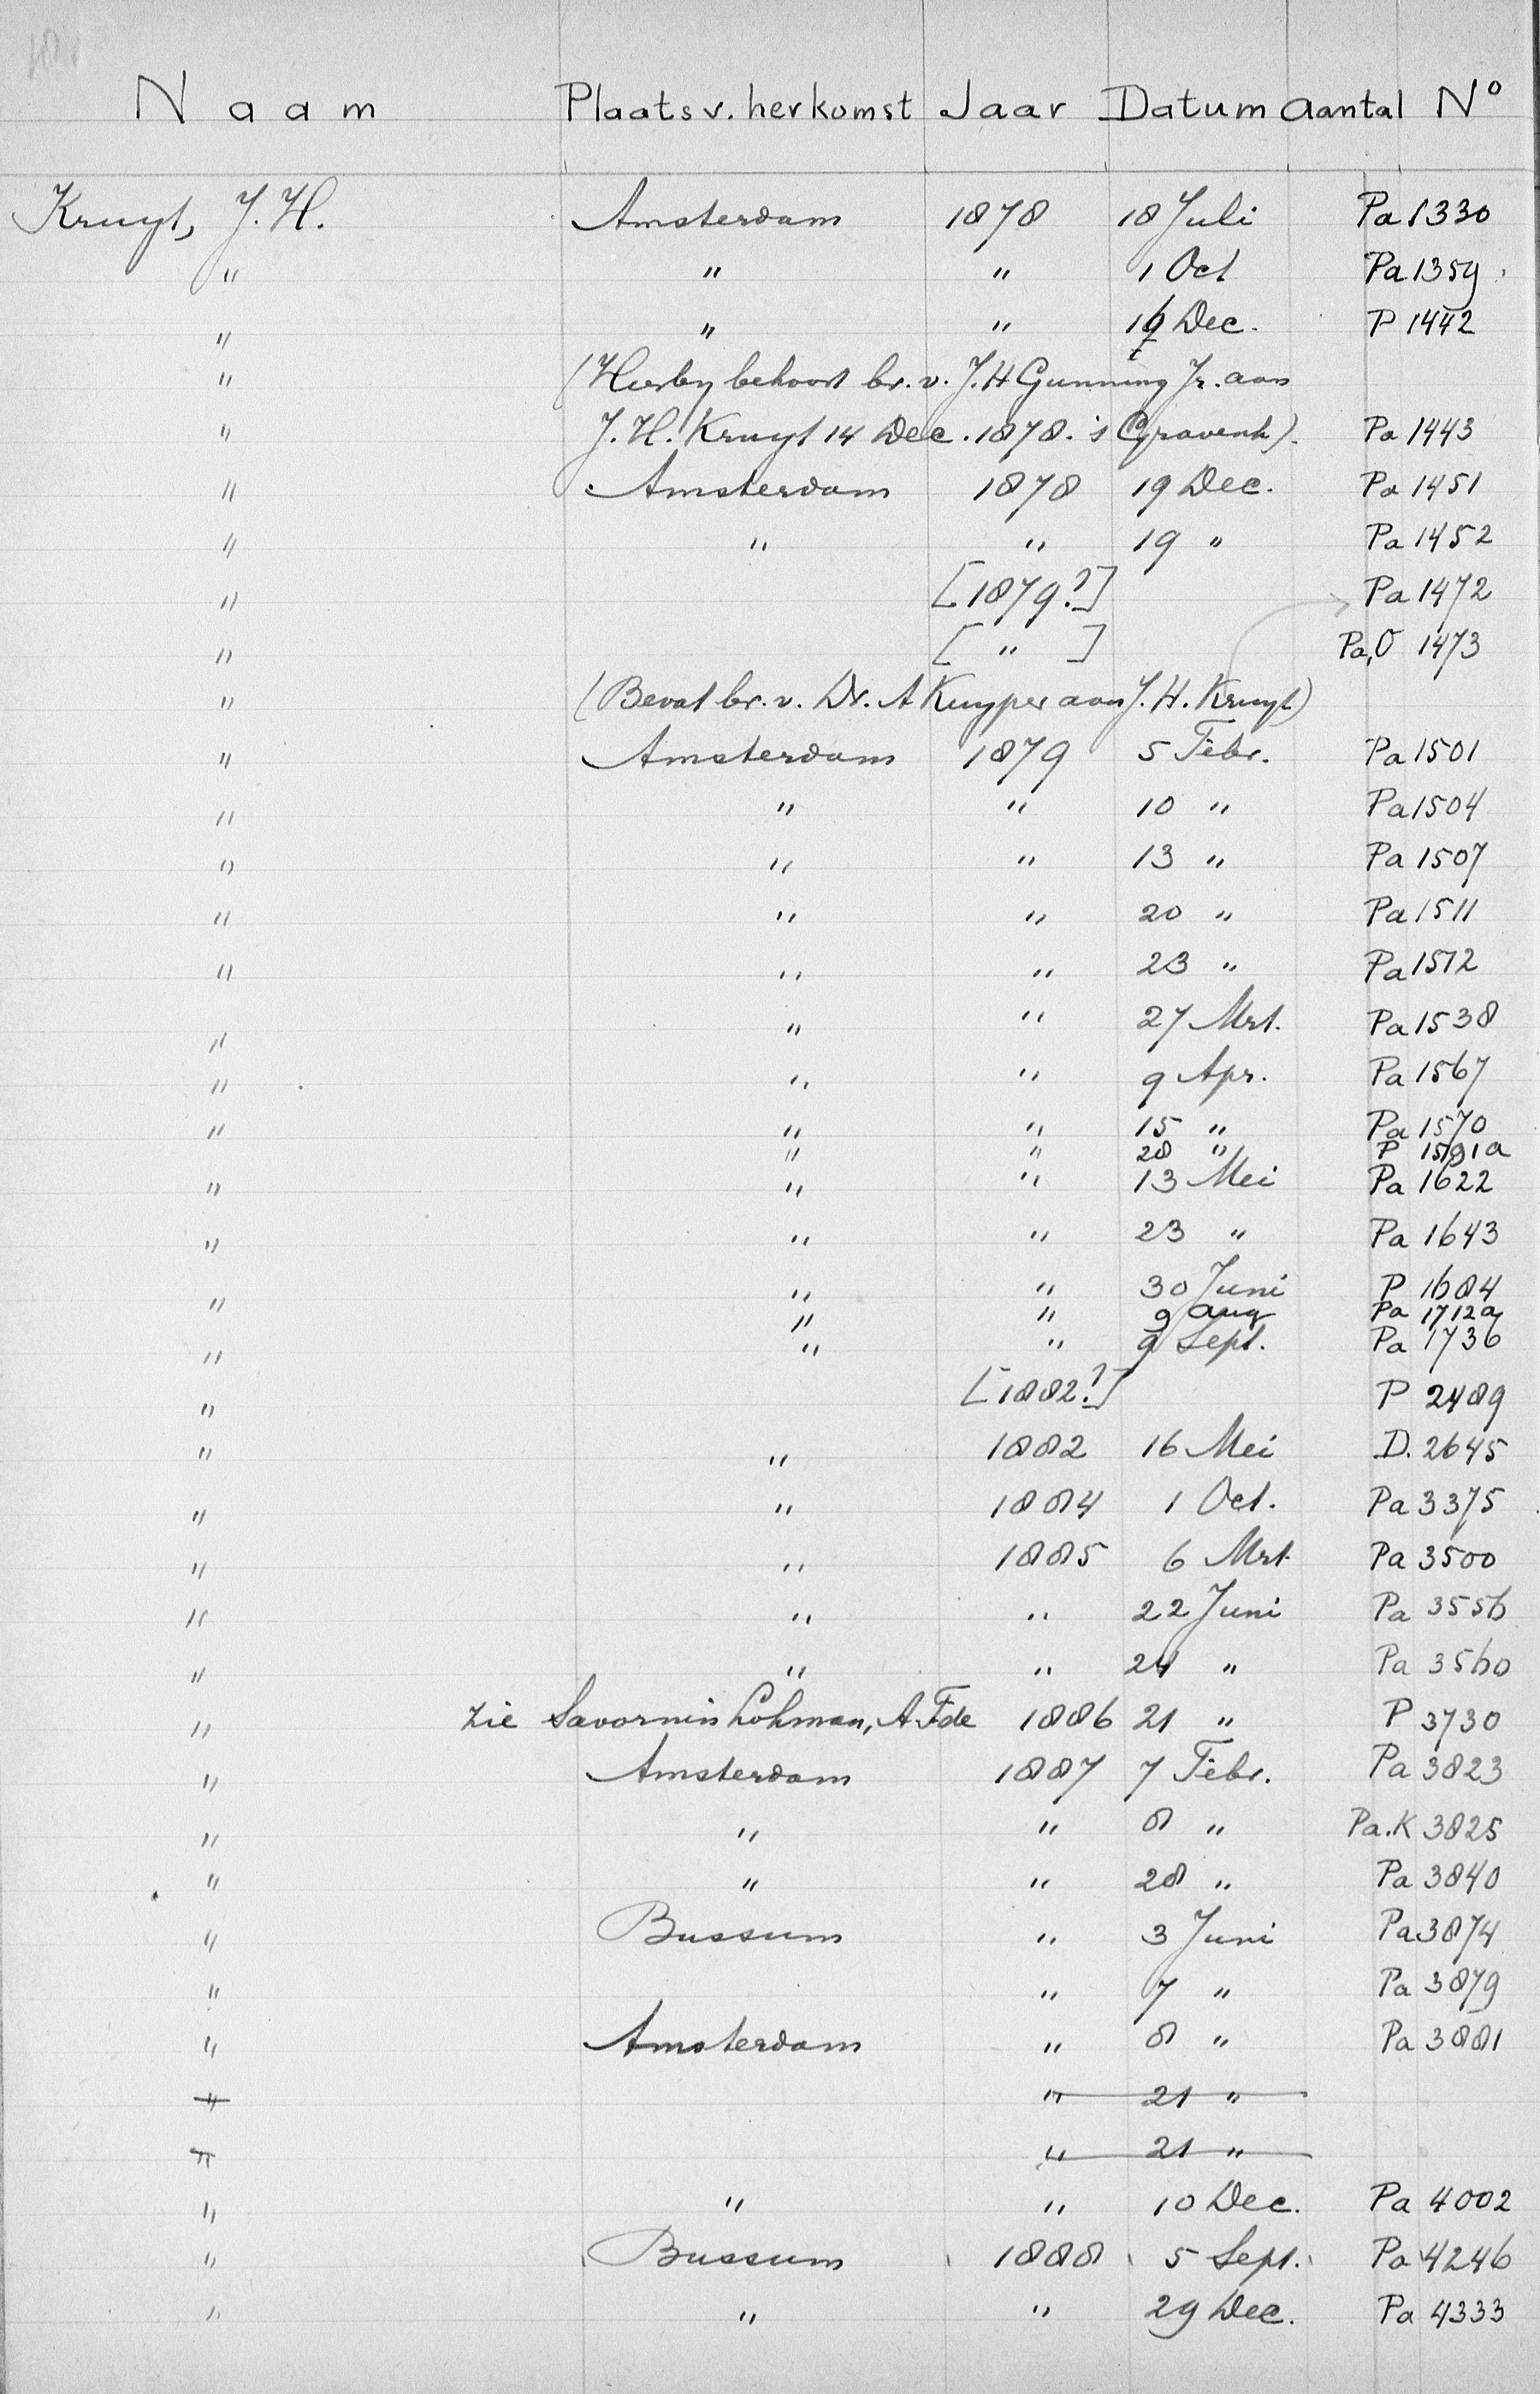 Naam Plaats v. herkomst Jaar Datum Aantal Nº
Kruyt, J. H. Amsterdam 1878 18 Juli Pa 1330
" " " 1 Oct Pa 1359
" " " 16 Dec. P 1442
" (Hierby behoort br. v. J. H Gunning Jr. aan
" J. H. Kruyt 14 Dec. 1878. 's Gravenh). Pa 1443
" Amsterdam 1878 19 Dec. Pa 1451
" " " 19 " Pa 1452
" [1879?] Pa 1472
" [ " ] Pa,O 1473
" (Bevat br. v. Dr. A Kuyper aan J. H. Kruyt)
" Amsterdam 1879 5 Febr. Pa 1501
" " " 10 " Pa 1504
" " " 13 " Pa 1507
" " " 20 " Pa 1511
" " " 23 " Pa 1512
" " " 27 Mrt. Pa 1538
" " " 9 Apr. Pa 1567
" " " 15 " Pa 1570
" " 28 " P 1591a
" " " 13 Mei Pa 1622
" " " 23 " Pa 1643
" " " 30 Juni P 1684
" " 9 Aug Pa 1712a
" " " 9 Sept. Pa 1736
" [1882?] P 2489
" " 1882 16 Mei D. 2645
" " 1884 1 Oct. Pa 3375
" " 1885 6 Mrt. Pa 3500
" " " 22 Juni Pa 3556
" " " 24 " Pa 3560
" zie Savornin Lohman, A.F.de 1886 21 " P 3730
" Amsterdam 1887 7 Febr. Pa 3823
" " " 8 " Pa.K 3825
" " " 28 " Pa 3840
" Bussum " 3 Juni Pa 3874
" " 7 " Pa 3879
" Amsterdam " 8 " Pa 3881
" " 21 "
" " 21 "
" " " 10 Dec. Pa 4002
" Bussum 1888 5 Sept. Pa 4246
" " " 29 Dec. Pa 4333